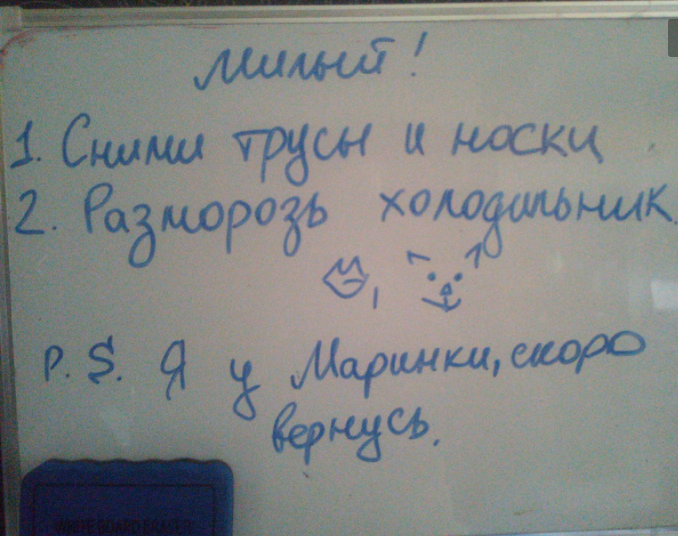 Милый!
1. Сними трусы и носки
2. Разморозь холодильник.
P.S. Я у Маринки, скоро
вернусь.
WHITE BOARD ERASER